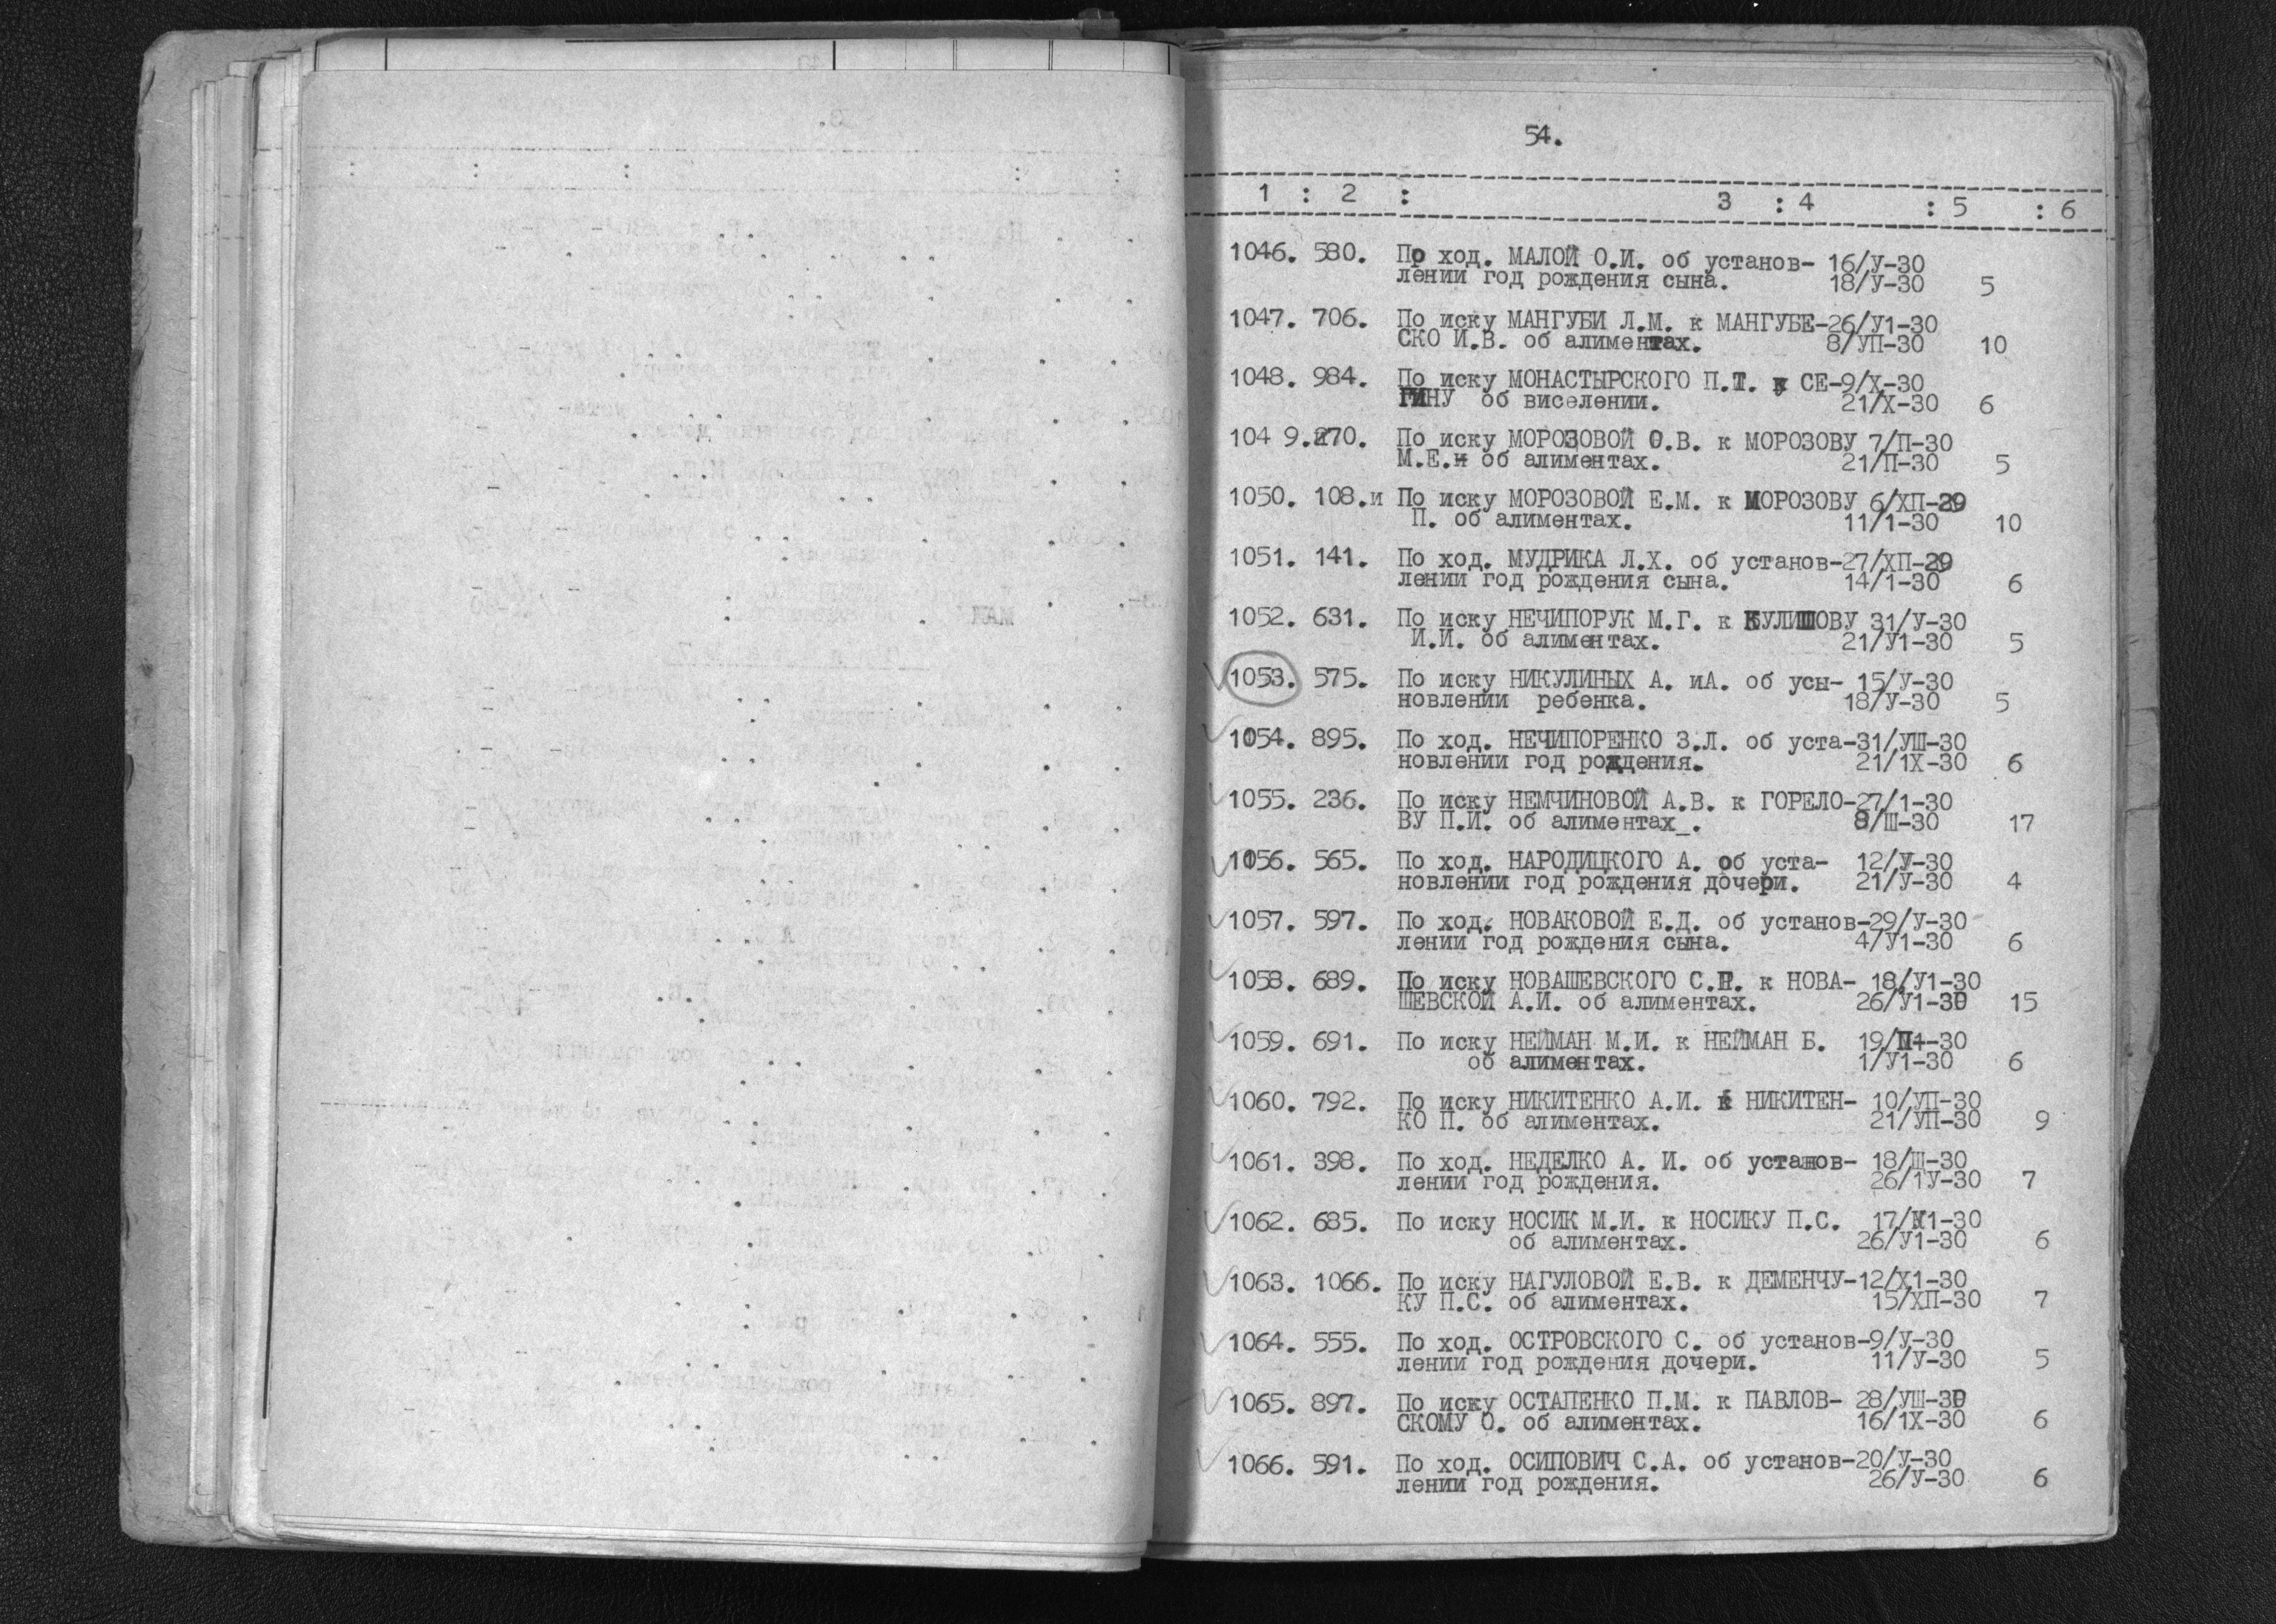 54.
1 : 2 : 3 : 4 : 5 : 6
1046. 580. По ход. МАЛОЙ О.И. об установ- 16/У-30
лении год рождения сына. 18/У-30 5
1047. 706. По иску МАНГУБИ Л.М. к МАНГУБЕ-26/У1-30
СКО И.В. об алиментах. 8/УП-30 10
1048. 984. По иску МОНАСТЫРСКОГО П.Т. к СЕ-9/Х-30
ГИНУ об виселении. 21/Х-30 6
104 9. 270. По иску МОРОЗОВОЙ О.В. к МОРОЗОВУ 7/П-30
М.Е.и об алиментах. 21/П-30 5
1050. 108.и По иску МОРОЗОВОЙ Е.М. к МОРОЗОВУ 6/ХП-29
П. об алиментах. 11/1-30 10
1051. 141. По ход. МУДРИКА Л.Х. об установ-27/ХП-29
лении год рождения сына. 14/1-30 6
1052. 631. По иску НЕЧИПОРУК М.Г. к КУЛИШОВУ 31/У-30
И.И. об алиментах. 21/У1-30 5
1053. 575. По иску НИКУЛИНЫХ А. иА. об усы- 15/У-30
новлении ребенка. 18/У-30 5
1054. 895. По ход. НЕЧИПОРЕНКО З.Л. об уста-31/УШ-30
новлении год рождения. 21/1Х-30 6
1055. 236. По иску НЕМЧИНОВОЙ А.В. к ГОРЕЛО-27/1-30
ВУ П.И. об алиментах_. 8/Ш-30 17
1056. 565. По ход. НАРОДИЦКОГО А. об уста- 12/У-30
новлении год рождения дочери. 21/У-30 4
1057. 597. По ход. НОВАКОВОЙ Е.Д. об установ-29/У-30
лении год рождения сына. 4/У1-30 6
1058. 689. По иску НОВАШЕВСКОГО С.Р. к НОВА- 18/У1-30
ШЕВСКОЙ А.И. об алиментах. 26/У1-30 15
1059. 691. По иску НЕЙМАН М.И. к НЕЙМАН Б. 19/П1-30
об алиментах. 1/У1-30 6
1060. 792. По иску НИКИТЕНКО А.И. к НИКИТЕН- 10/УП-30
КО П. об алиментах. 21/УП-30 9
1061. 398. По ход. НЕДЕЛКО А. И. об установ- 18/Ш-30
лении год рождения. 26/1У-30 7
1062. 685. По иску НОСИК М.И. к НОСИКУ П.С. 17/У1-30
об алиментах. 26/У1-30 6
1063. 1066. По иску НАГУЛОВОЙ Е.В. к ДЕМЕНЧУ-12/Х1-30
КУ П.С. об алиментах. 15/ХП-30 7
1064. 555. По ход. ОСТРОВСКОГО С. об установ-9/У-30
лении год рождения дочери. 11/У-30 5
1065. 897. По иску ОСТАПЕНКО П.М. к ПАВЛОВ- 28/УШ-30
СКОМУ О. об алиментах. 16/1Х-30 6
1066. 591. По ход. ОСИПОВИЧ С.А. об установ-20/У-30
лении год рождения. 26/У-30 6